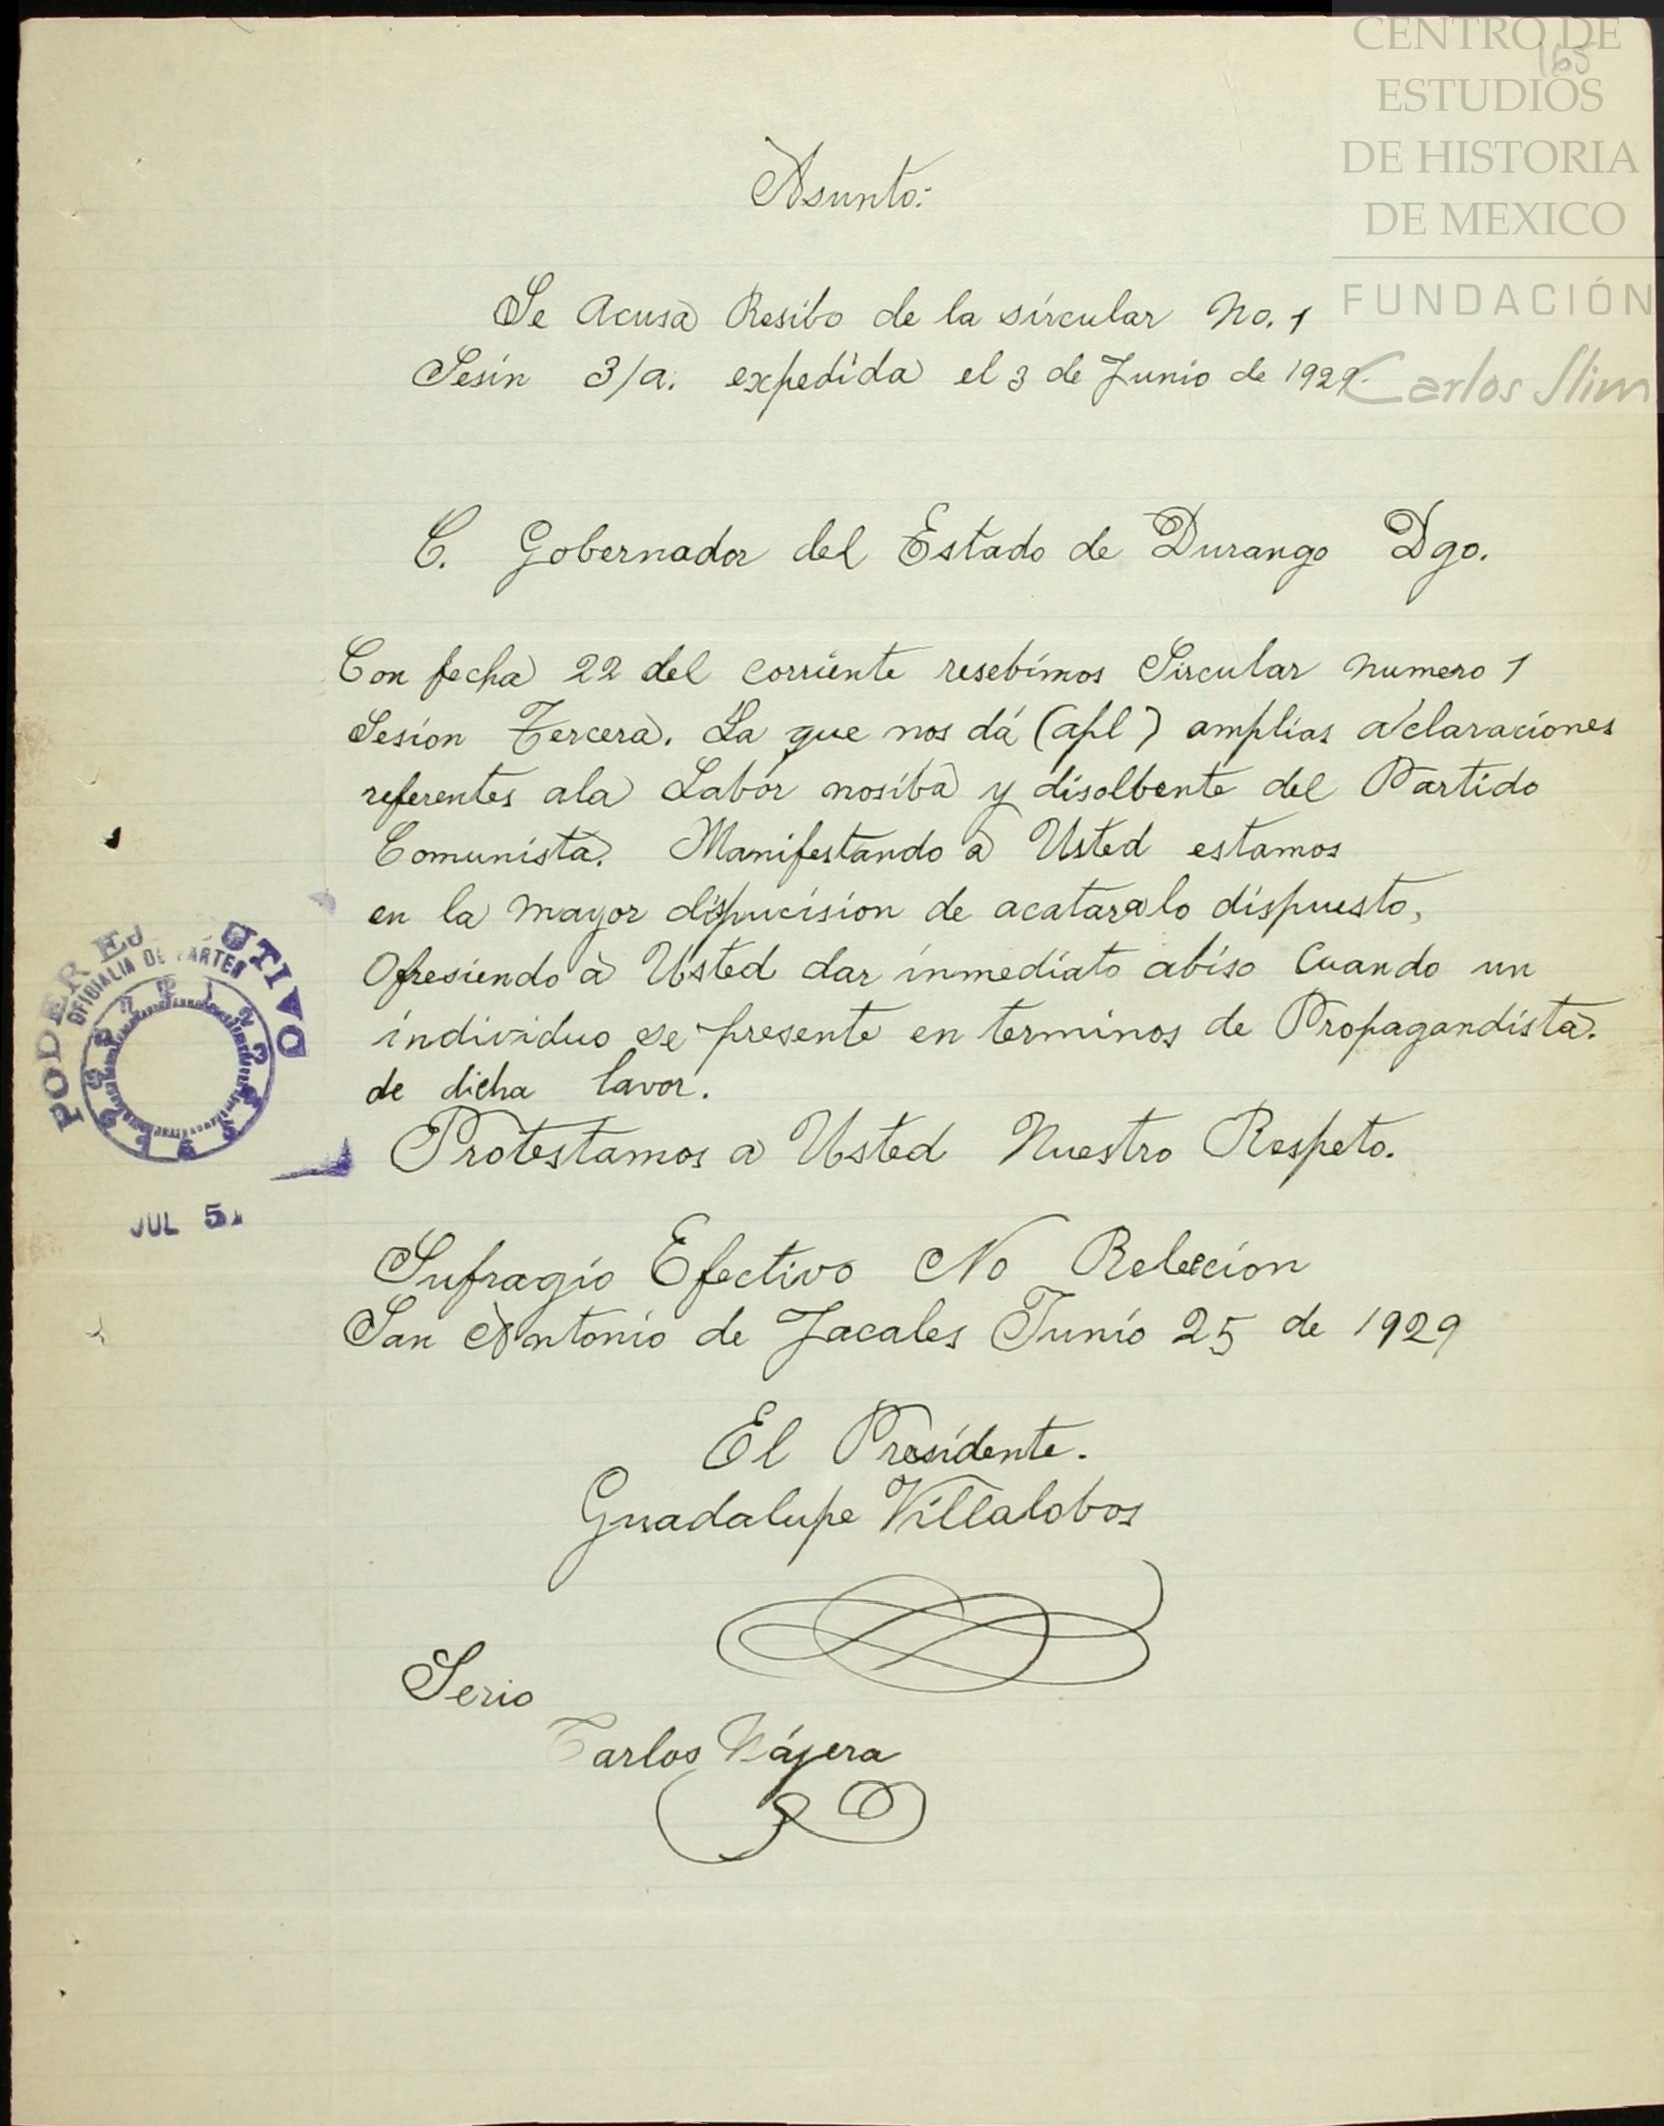 CENTRO DE
ESTUDIOS
DE HISTORIA
DE MEXICO
FUNDACIÓN
Carlos Slim
165
Asunto:
Se Acusa Resibo de la sircular No. 1
Sesin 3/a. expedida el 3 de Junio de 1929.
C. Gobernador del Estado de Durango Dgo.
Con fecha 22 del corriente resebimos Sircular Numero 1
Sesion Tercera. La que nos dá (apl) amplias aclaraciones
referentes ala Labor nosiba y disolbente del Partido
Comunista. Manifestando a Usted estamos
en la mayor dispucision de acataralo dispuesto,
Ofresiendo à Usted dar inmediato abiso Cuando un
individuo se presente en terminos de Propagandista.
de dicha lavor.
Protestamos a Usted Nuestro Respeto.
Sufragio Efectivo No Releecion
San Antonio de Jacales Junio 25 de 1929
El Presidente.
Guadalupe Villalobos
Serio
Carlos Nájera
PODER EJ TIVO
OFICIALIA DE PARTES
JUL 5